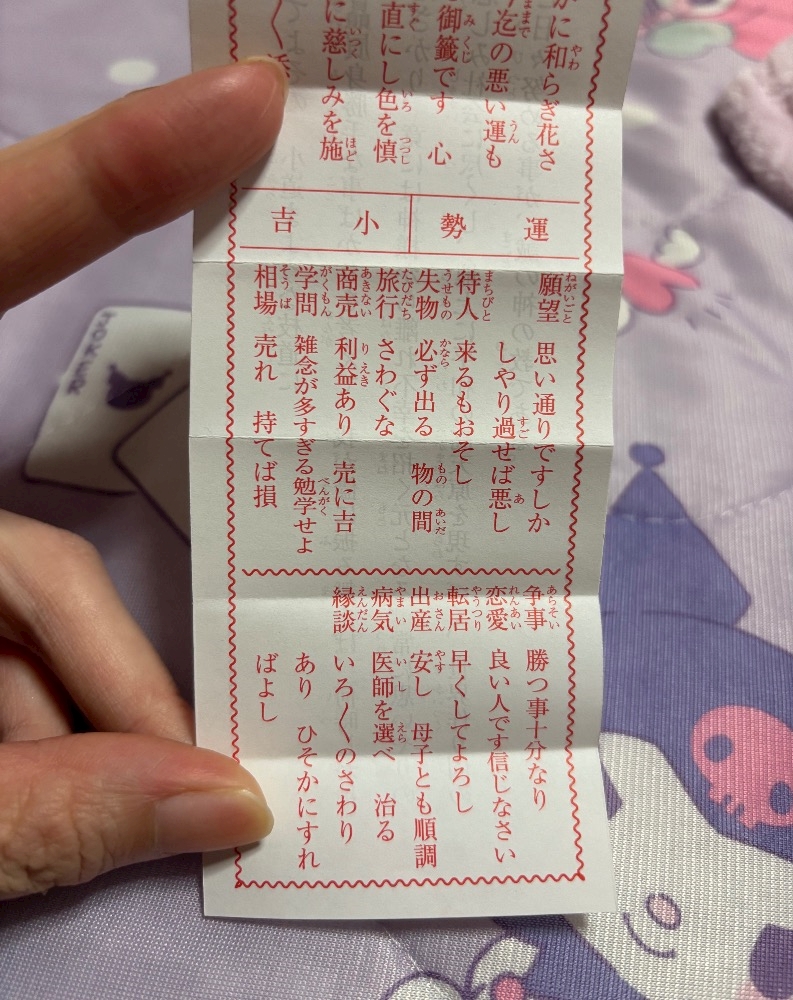 かに和らぎ花さ
迄の悪い運も
御籤です　心
直にし色を慎
に慈しみを施
運勢　小吉
願望　思い通りですしか
しやり過せば悪し
待人　来るもおそし
失物　必ず出る　物の間
旅行　さわぐな
商売　利益あり　売に吉
学問　雑念が多すぎる勉学せよ
相場　売れ　持てば損
争事　勝つ事十分なり
恋愛　良い人です信じなさい
転居　早くしてよろし
出産　安し　母子とも順調
病気　医師を選べ　治る
縁談　いろ〱のさわり
あり　ひそかにすれ
ばよし
JOKER